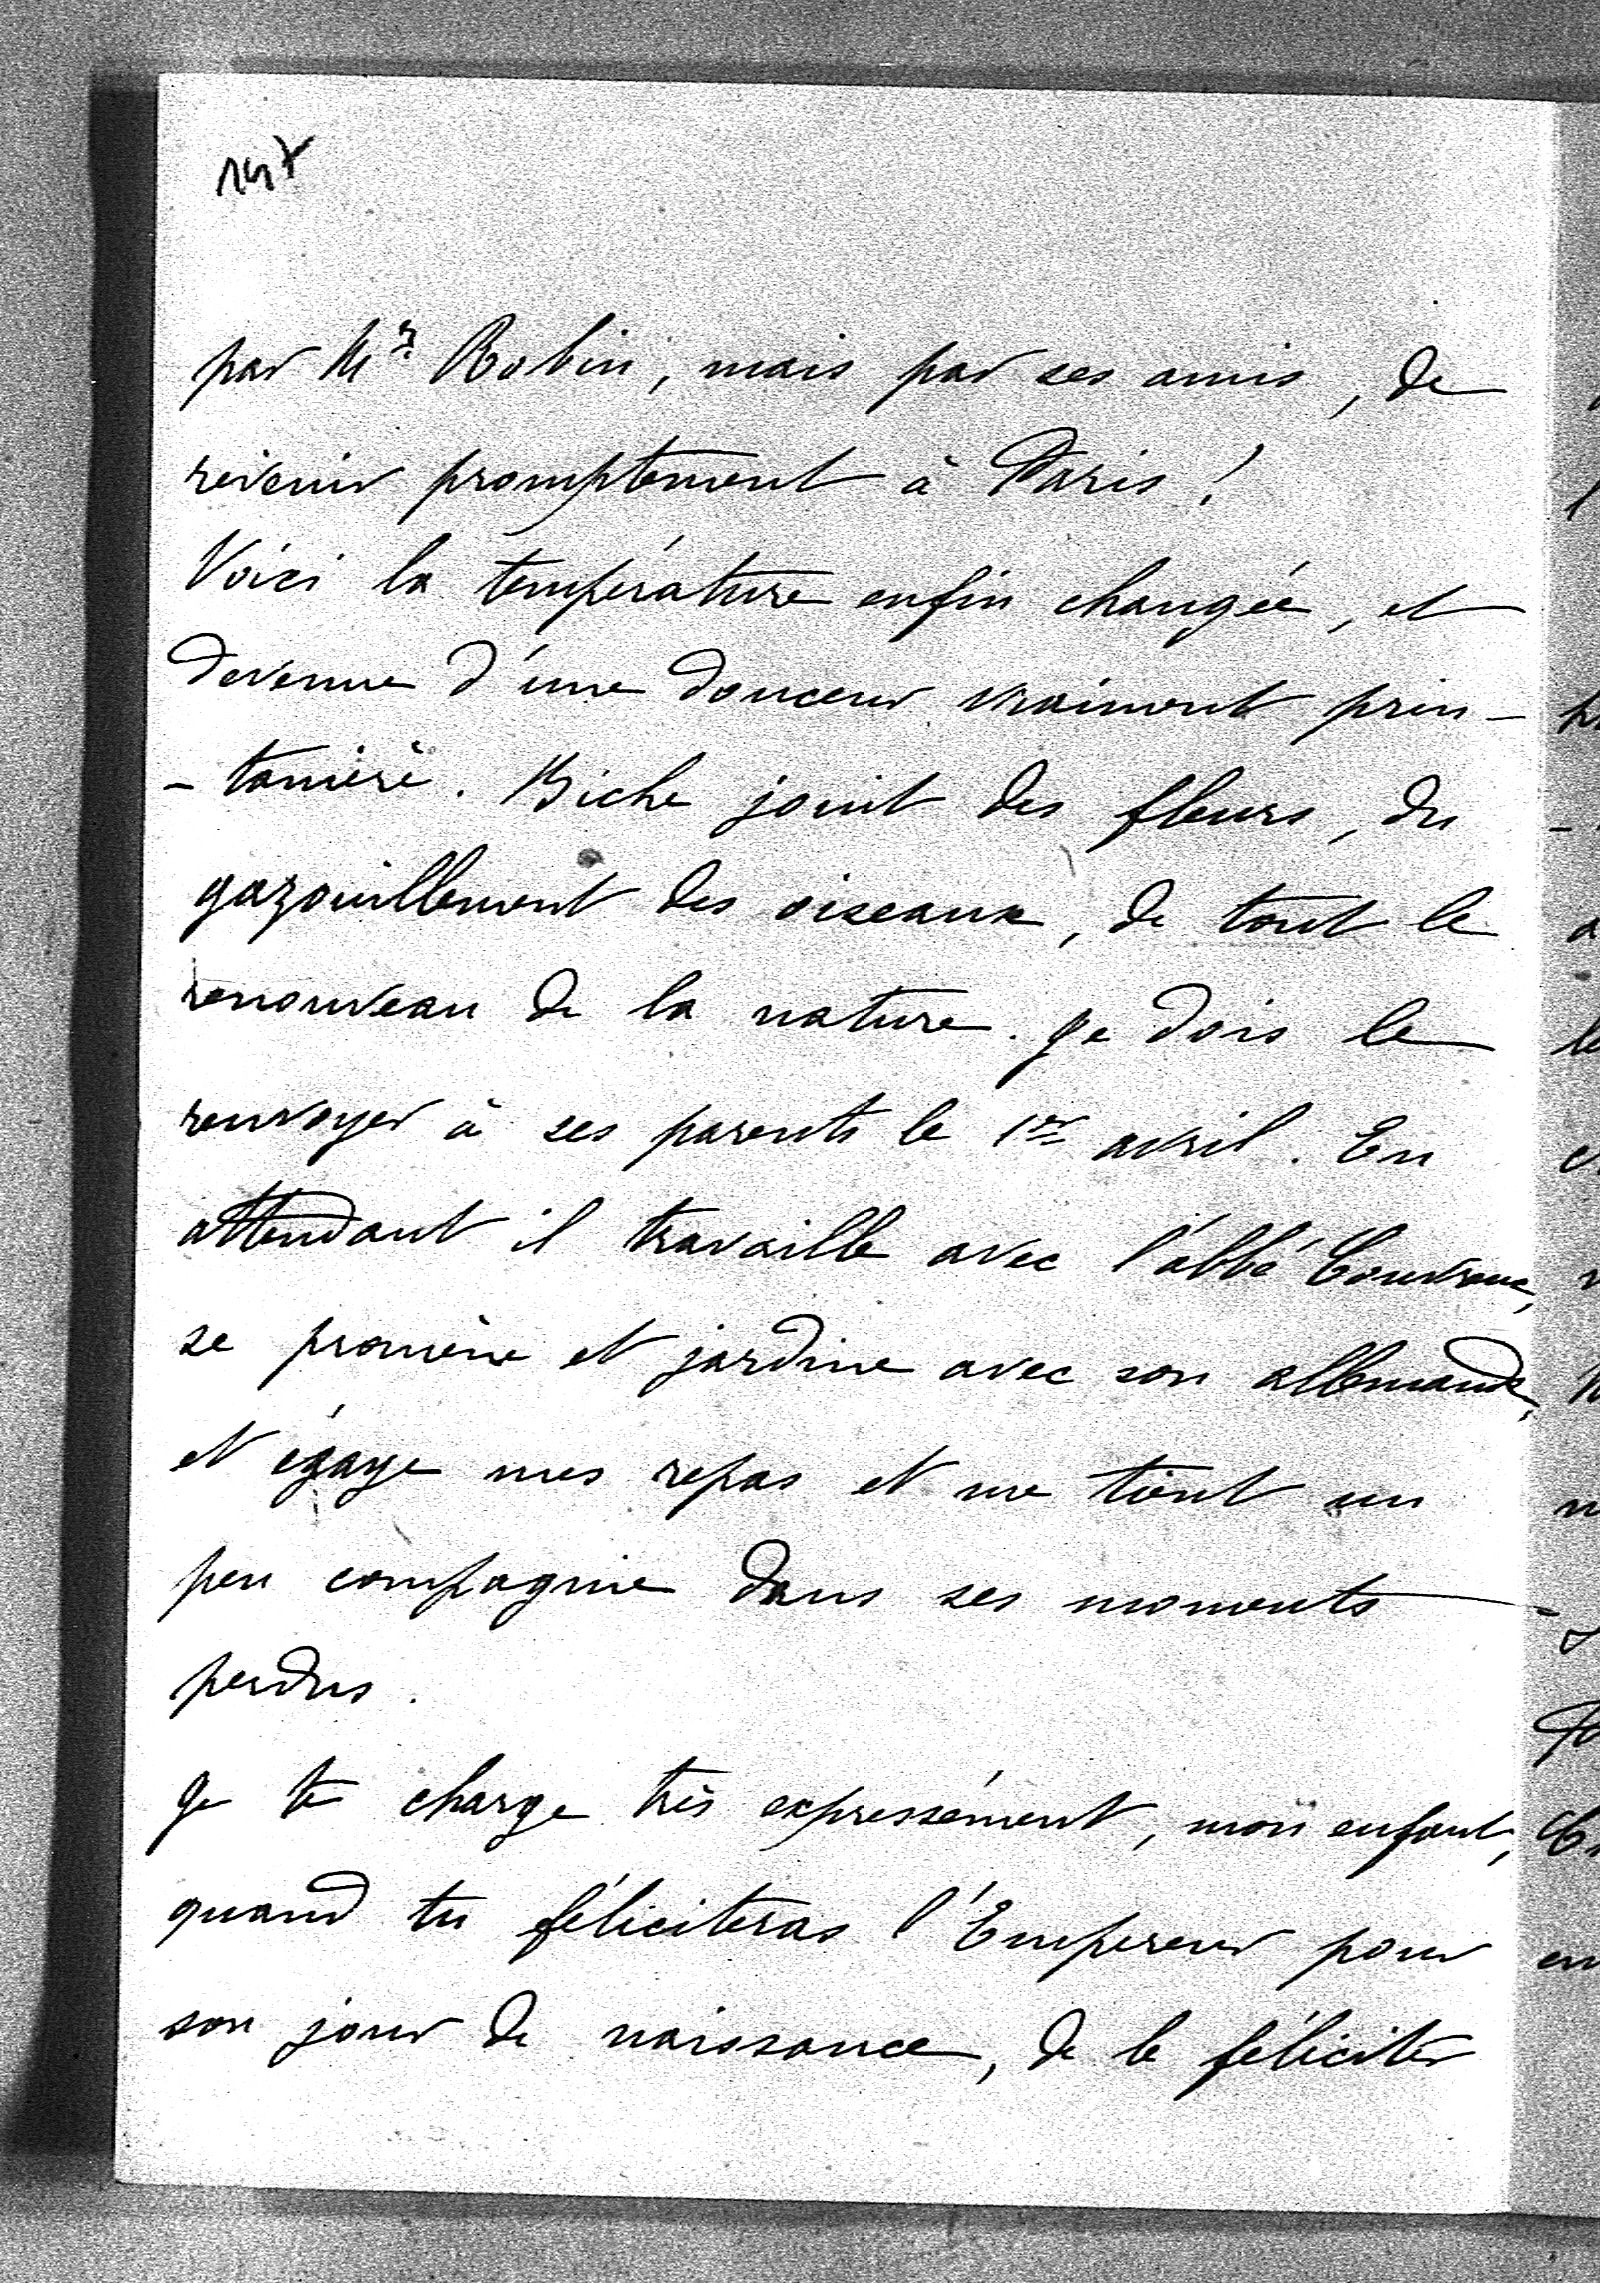 147
par Mr. Robin, mais par ses amis, de
revenir promptement à Paris !
Voici la température enfin changée, et
devenue d'une douceur vraiment prin-
-tanière. Biche jouit des fleurs, du
gazouillement des oiseaux, de tout le
renouveau de la nature. Je dois le
renvoyer à ses parents le 1er avril. En
attendant il travaille avec l'abbé
se promène et jardine avec son allemande,
et égaye mes repas et me tient un
peu compagnie dans ses moments
perdus.
Je te charge très expressément, mon enfant,
quand tu féliciteras l'Empereur pour
son jour de naissance, de le féliciter